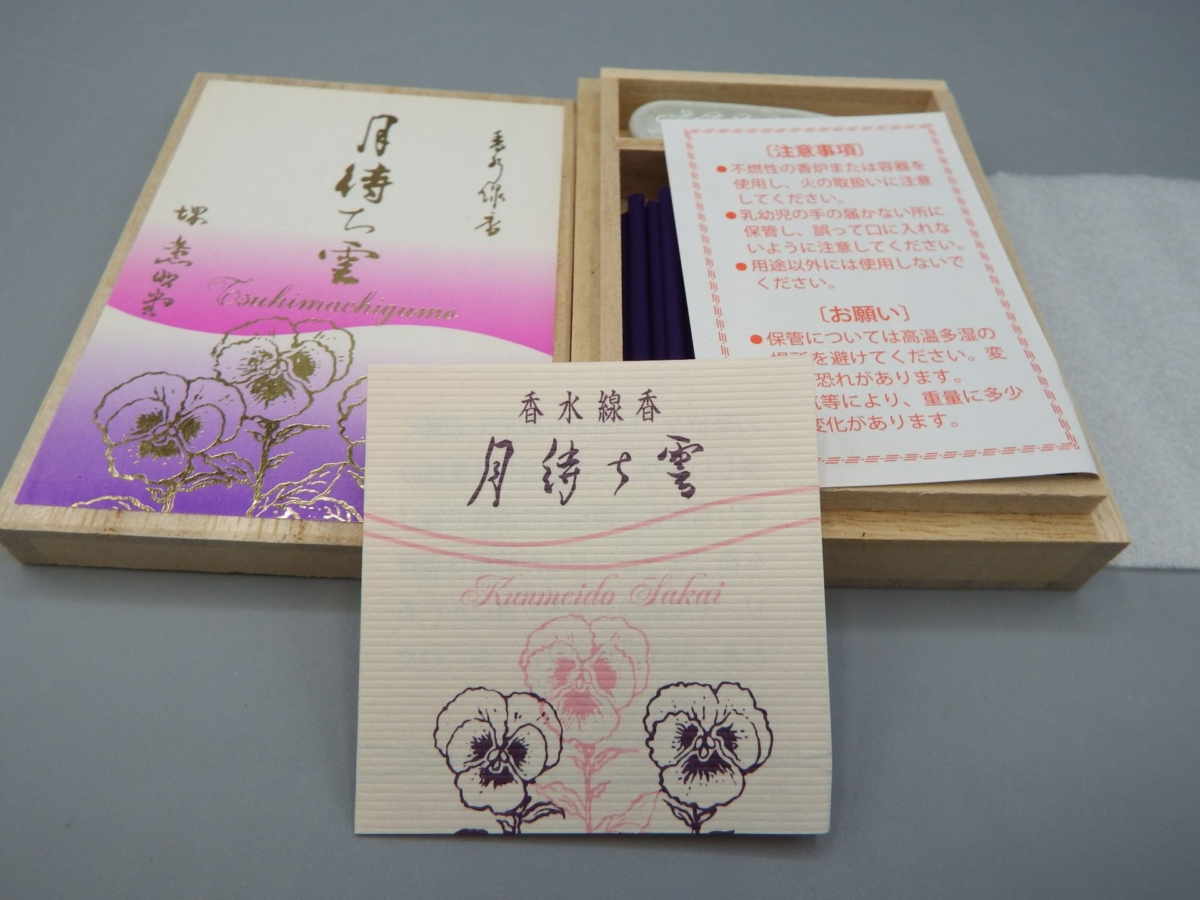 香水線香
月待ち雲
堺 薫明堂
Tsukimachigumo
[注意事項]
●不燃性の香炉または容器を
使用し、火の取扱いに注意
してください。
●乳幼児の手の届かない所に
保管し、誤って口に入れな
いように注意してください。
●用途以外には使用しないで
ください。
[お願い]
●保管については高温多湿の
を避けてください。変
恐れがあります。
等により、重量に多少
変化があります。
香水線香
月待ち雲
Kunmeido Sakai